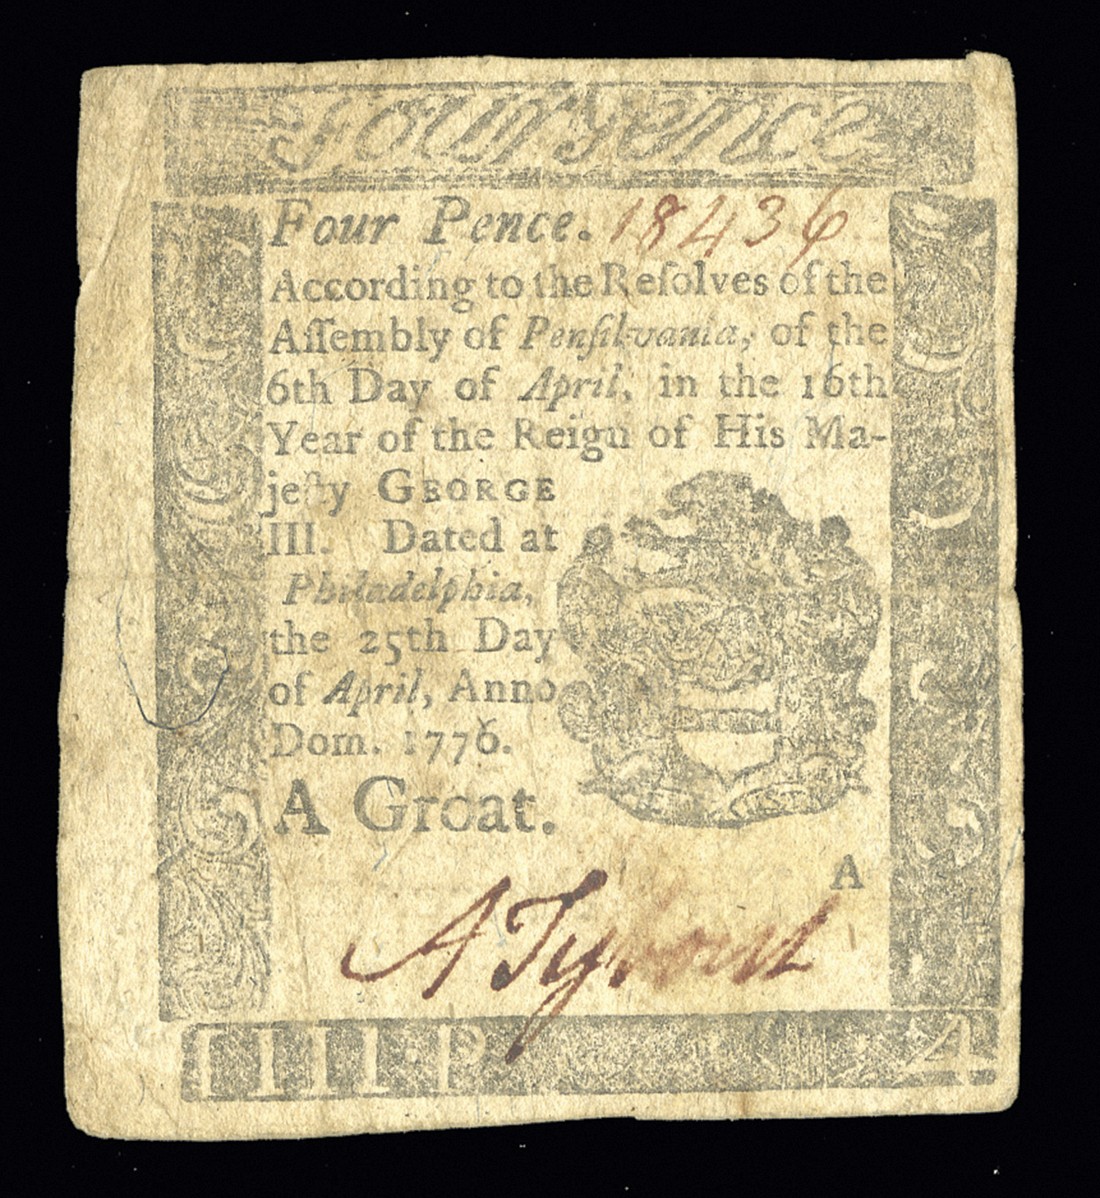 Four Pence
Four Pence. 18436
According to the Reſolves of the
Aſſembly of Penſilvania, of the
6th Day of April, in the 16th
Year of the Reign of His Ma-
jeſty GEORGE
III. Dated at
Philadelphia,
the 25th Day
of April, Anno
Dom. 1776.
A Groat.
A
A Ty
IIII P 4